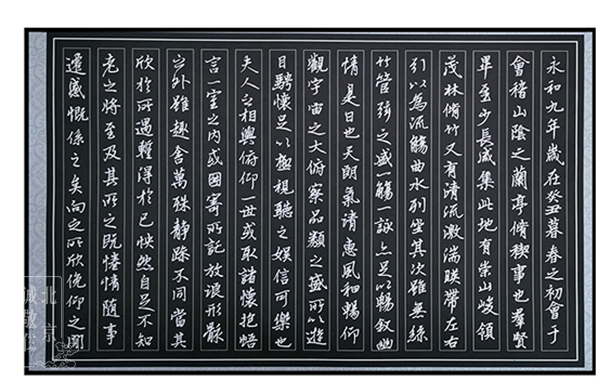 永和九年歲在癸丑暮春之初會于
會稽山陰之蘭亭脩稧事也羣賢
畢至少長咸集此地有崇山峻領
茂林脩竹又有清流激湍暎帶左右
引以為流觴曲水列坐其次雖無絲
竹管弦之盛一觴一詠亦足以暢敘幽
情是日也天朗氣清惠風和暢仰
觀宇宙之大俯察品類之盛所以遊
目騁懷足以極視聽之娛信可樂也
夫人之相與俯仰一世或取諸懷抱悟
言一室之內或因寄所託放浪形骸
之外雖趣舍萬殊静躁不同當其
欣於所遇暫得於己怏然自足不知
老之將至及其所之既惓情隨事
遷感慨係之矣向之所欣俛仰之閒
北京